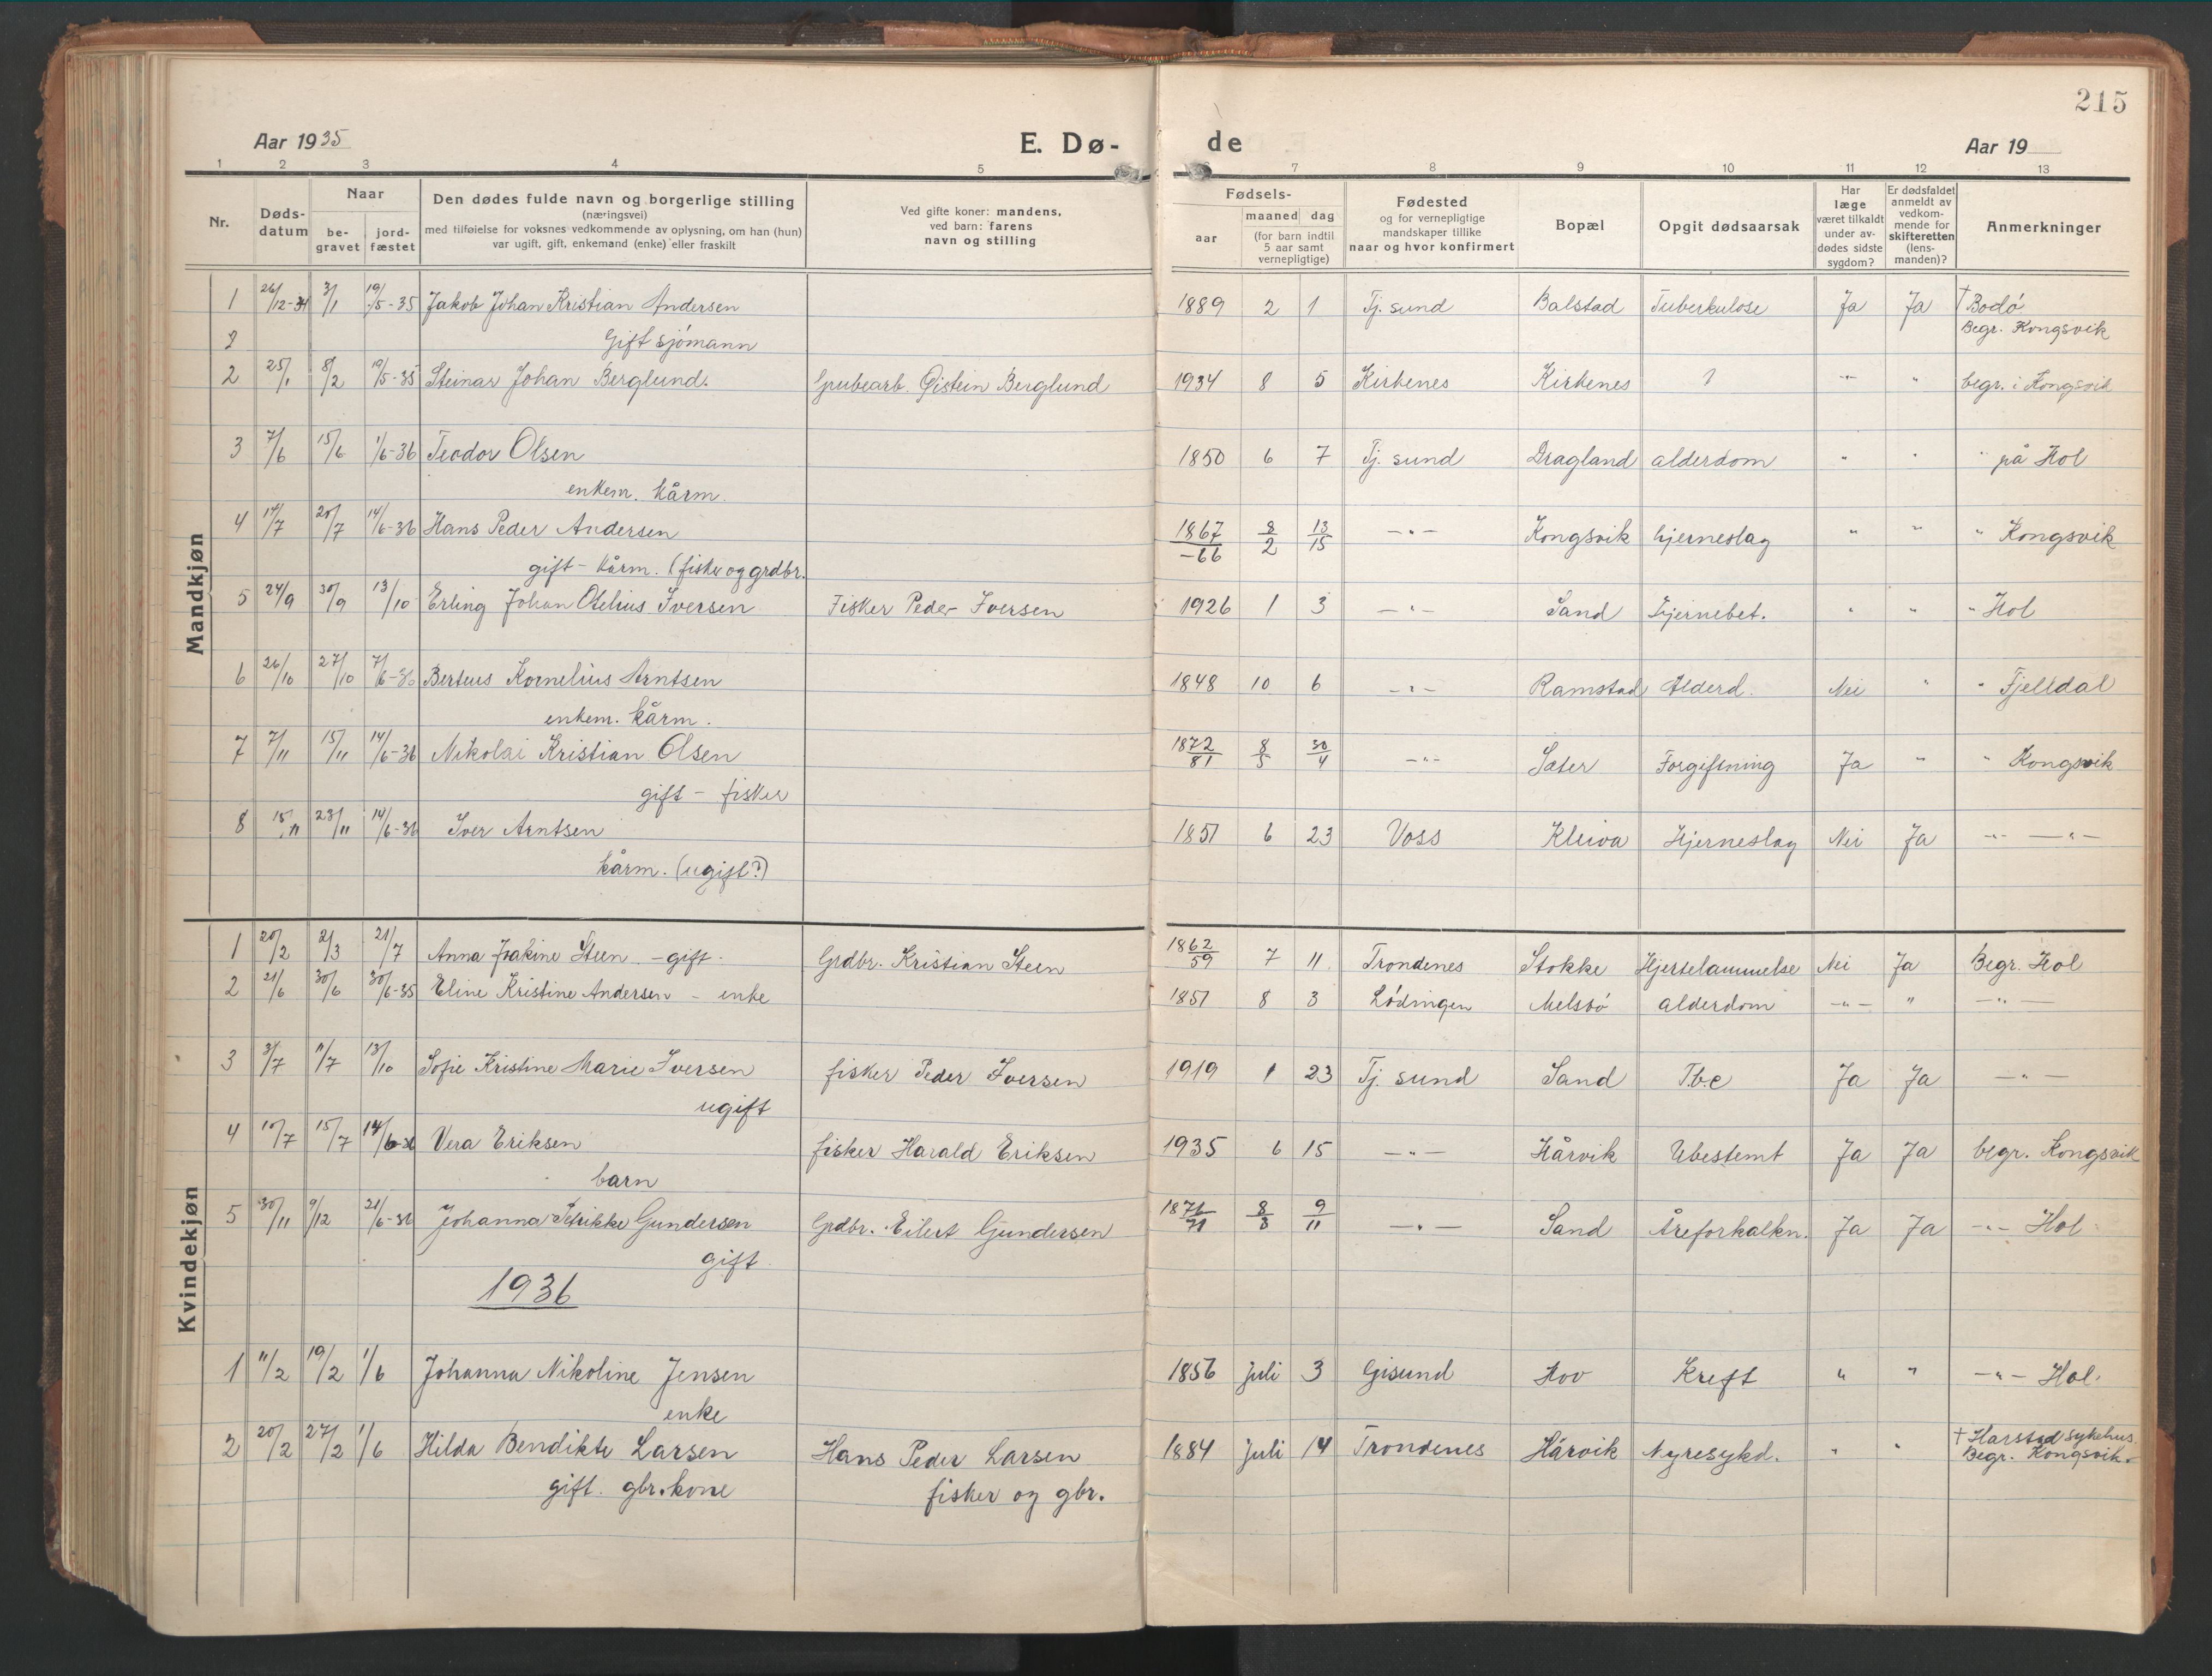 215
Aar 1935 E. Dø- de Aar 19
1 2 3 4 5 6 7 8 9 10 11 12 13
Nr. Døds-datum Naar be-gravet jord-fæstet Den dødes fulde navn og borgerlige stilling (næringsvei) med tilføielse for voksnes vedkommende av oplysning, om han (hun) var ugift, gift, enkemand (enke) eller fraskilt Ved gifte koner: mandens, ved barn: farens navn og stilling Fødsels- aar maaned dag (for barn indtil 5 aar samt vernepligtige) Fødested og for vernepligtige mandskaper tillike naar og hvor konfirmert Bopæl Opgit dødsaarsak Har læge været tilkaldt under av-dødes sidste sygdom? Er dødsfaldet anmeldt av vedkom-mende for skifteretten (lens-manden)? Anmerkninger
Mandkjøn
1 26/12-34 3/1 19/5-35 Jakob Johan Kristian Andersen 1889 2 1 Tj. sund Balstad Tuberkulose Ja Ja † Bodó
Gift sjómann Begr. Kongsvik
2 25/1 8/2 19/5-35 Steinar Johan Berglund. Grubearb. Øistein Berglund 1934 8 5 Kirkenes Kirkenes ? -"- " begr. i Kongsvik
3 7/6 15/6 1/6-36 Teodor Olsen 1850 6 7 Tj. sund Dragland alderdom " " " på Hol
enkem. kårm.
4 14/7 20/7 14/6-36 Hans Peder Andersen 1867/-66 8/2 13/15 -"- Kongsvik hjerneslag " " " Kongsvik
gift - kårm. (fisker og grdbr.
5 24/9 30/9 13/10 Erling Johan Otelius Iversen Fisker Peder Iversen 1926 1 3 -"- Sand Hjernebet. " " " Hol
6 26/10 27/10 7/6-36 Berteus Kornelius Arntsen 1848 10 6 -"- Ramstad Alderd. Nei " " Fjelldal
enkem. kårm.
7 7/11 15/11 14/6-36 Nikolai Kristian Olsen 1872/81 8/5 30/4 -"- Sæter Forgiftning Ja " " Kongsvik
gift - fisker
8 15/11 23/11 14/6-36 Iver Arntsen 1851 6 23 Voss Kleiva Hjerneslag Nei Ja -"- -"-
kårm. (ugift?)
Kvindekjøn
1 20/2 2/3 21/7 Anna Joakine Steen - gift. Grdbr. Kristian Steen 1862/59 7 11 Trondenes Stokke Hjertelammelse Nei Ja Begr. Hol
2 21/6 30/6 30/6-35 Eline Kristine Andersen - enke 1851 8 3 Lódingen Melsbó alderdom -"- " -"-
3 3/7 11/7 13/10 Sofie Kristine Marie Iversen fisker Peder Iversen 1919 1 23 Tj. sund Sand Tbc Ja Ja -"-
ugift
4 10/7 15/7 14/6-36 Vera Eriksen fisker Harald Eriksen 1935 6 15 -"- Hårvik Ubestemt Ja Ja begr. Kongsvik
barn
5 30/11 9/12 21/6-36 Johanna Gundersen Grdbr. Eilert Gundersen 1871/71 8/8 9/11 -"- Sand Åreforkalkn. Ja Ja -"- Hol
gift.
1936
1 11/2 19/2 1/6 Johanna Nikoline Jensen 1856 juli 3 Gisund Hov Kreft " " -"- Hol.
enke
2 20/2 27/2 1/6 Hilda Bendikte Larsen Hans Peder Larsen 1884 juli 14 Trondenes Hårvik Nyresykd. " " † Harstad sykehus.
gift. gbr.kone fisker og gbr. Begr. Kongsvik.